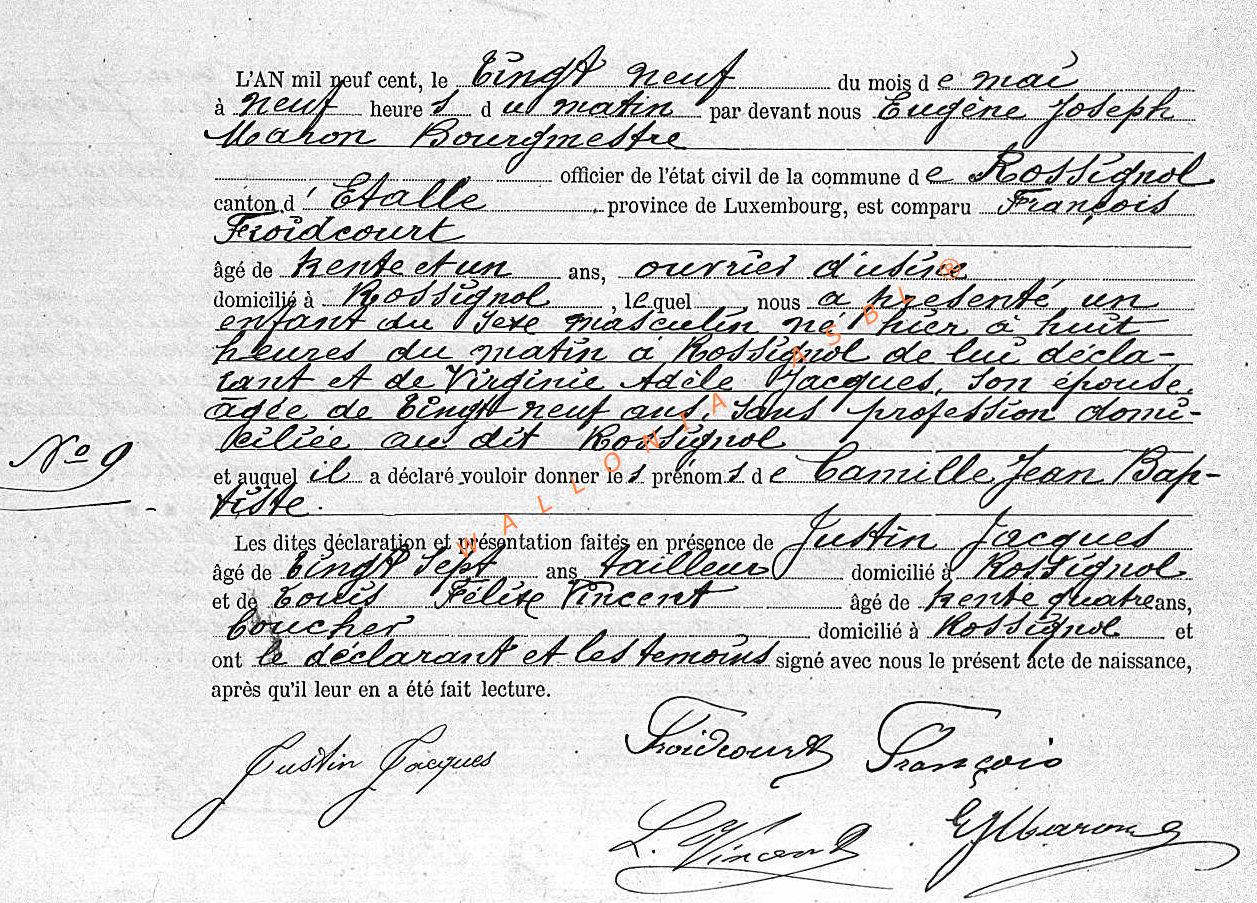 L'AN mil neuf cent, le Vingt neuf du mois de mai
à neuf heures du matin par devant nous Eugène Joseph
Maron Bourgmestre
officier de l'état civil de la commune de Rossignol
canton d'Etalle, province de Luxembourg, est comparu François
Froidcourt
âgé de trente et un ans, ouvrier d'usine
domicilié à Rossignol, lequel nous a présenté un
enfant du sexe masculin né hier à huit
heures du matin à Rossignol de lui décla-
rant et de Virginie Adèle Jacques, son épouse,
âgée de Vingt neuf ans, sans profession domi-
ciliée au dit Rossignol
No 9
et auquel il a déclaré vouloir donner les prénoms de Camille Jean Bap-
tiste.
Les dites déclaration et présentation faites en présence de Justin Jacques
âgé de Vingt Sept ans tailleur domicilié à Rossignol
et de Louis Félix Vincent âgé de trente quatre ans,
boucher domicilié à Rossignol et
ont le déclarant et les temoins signé avec nous le présent acte de naissance,
après qu'il leur en a été fait lecture.
Justin Jacques Froidcourt François
L. Vincent EJMaron
WALLONIA ASBL ©